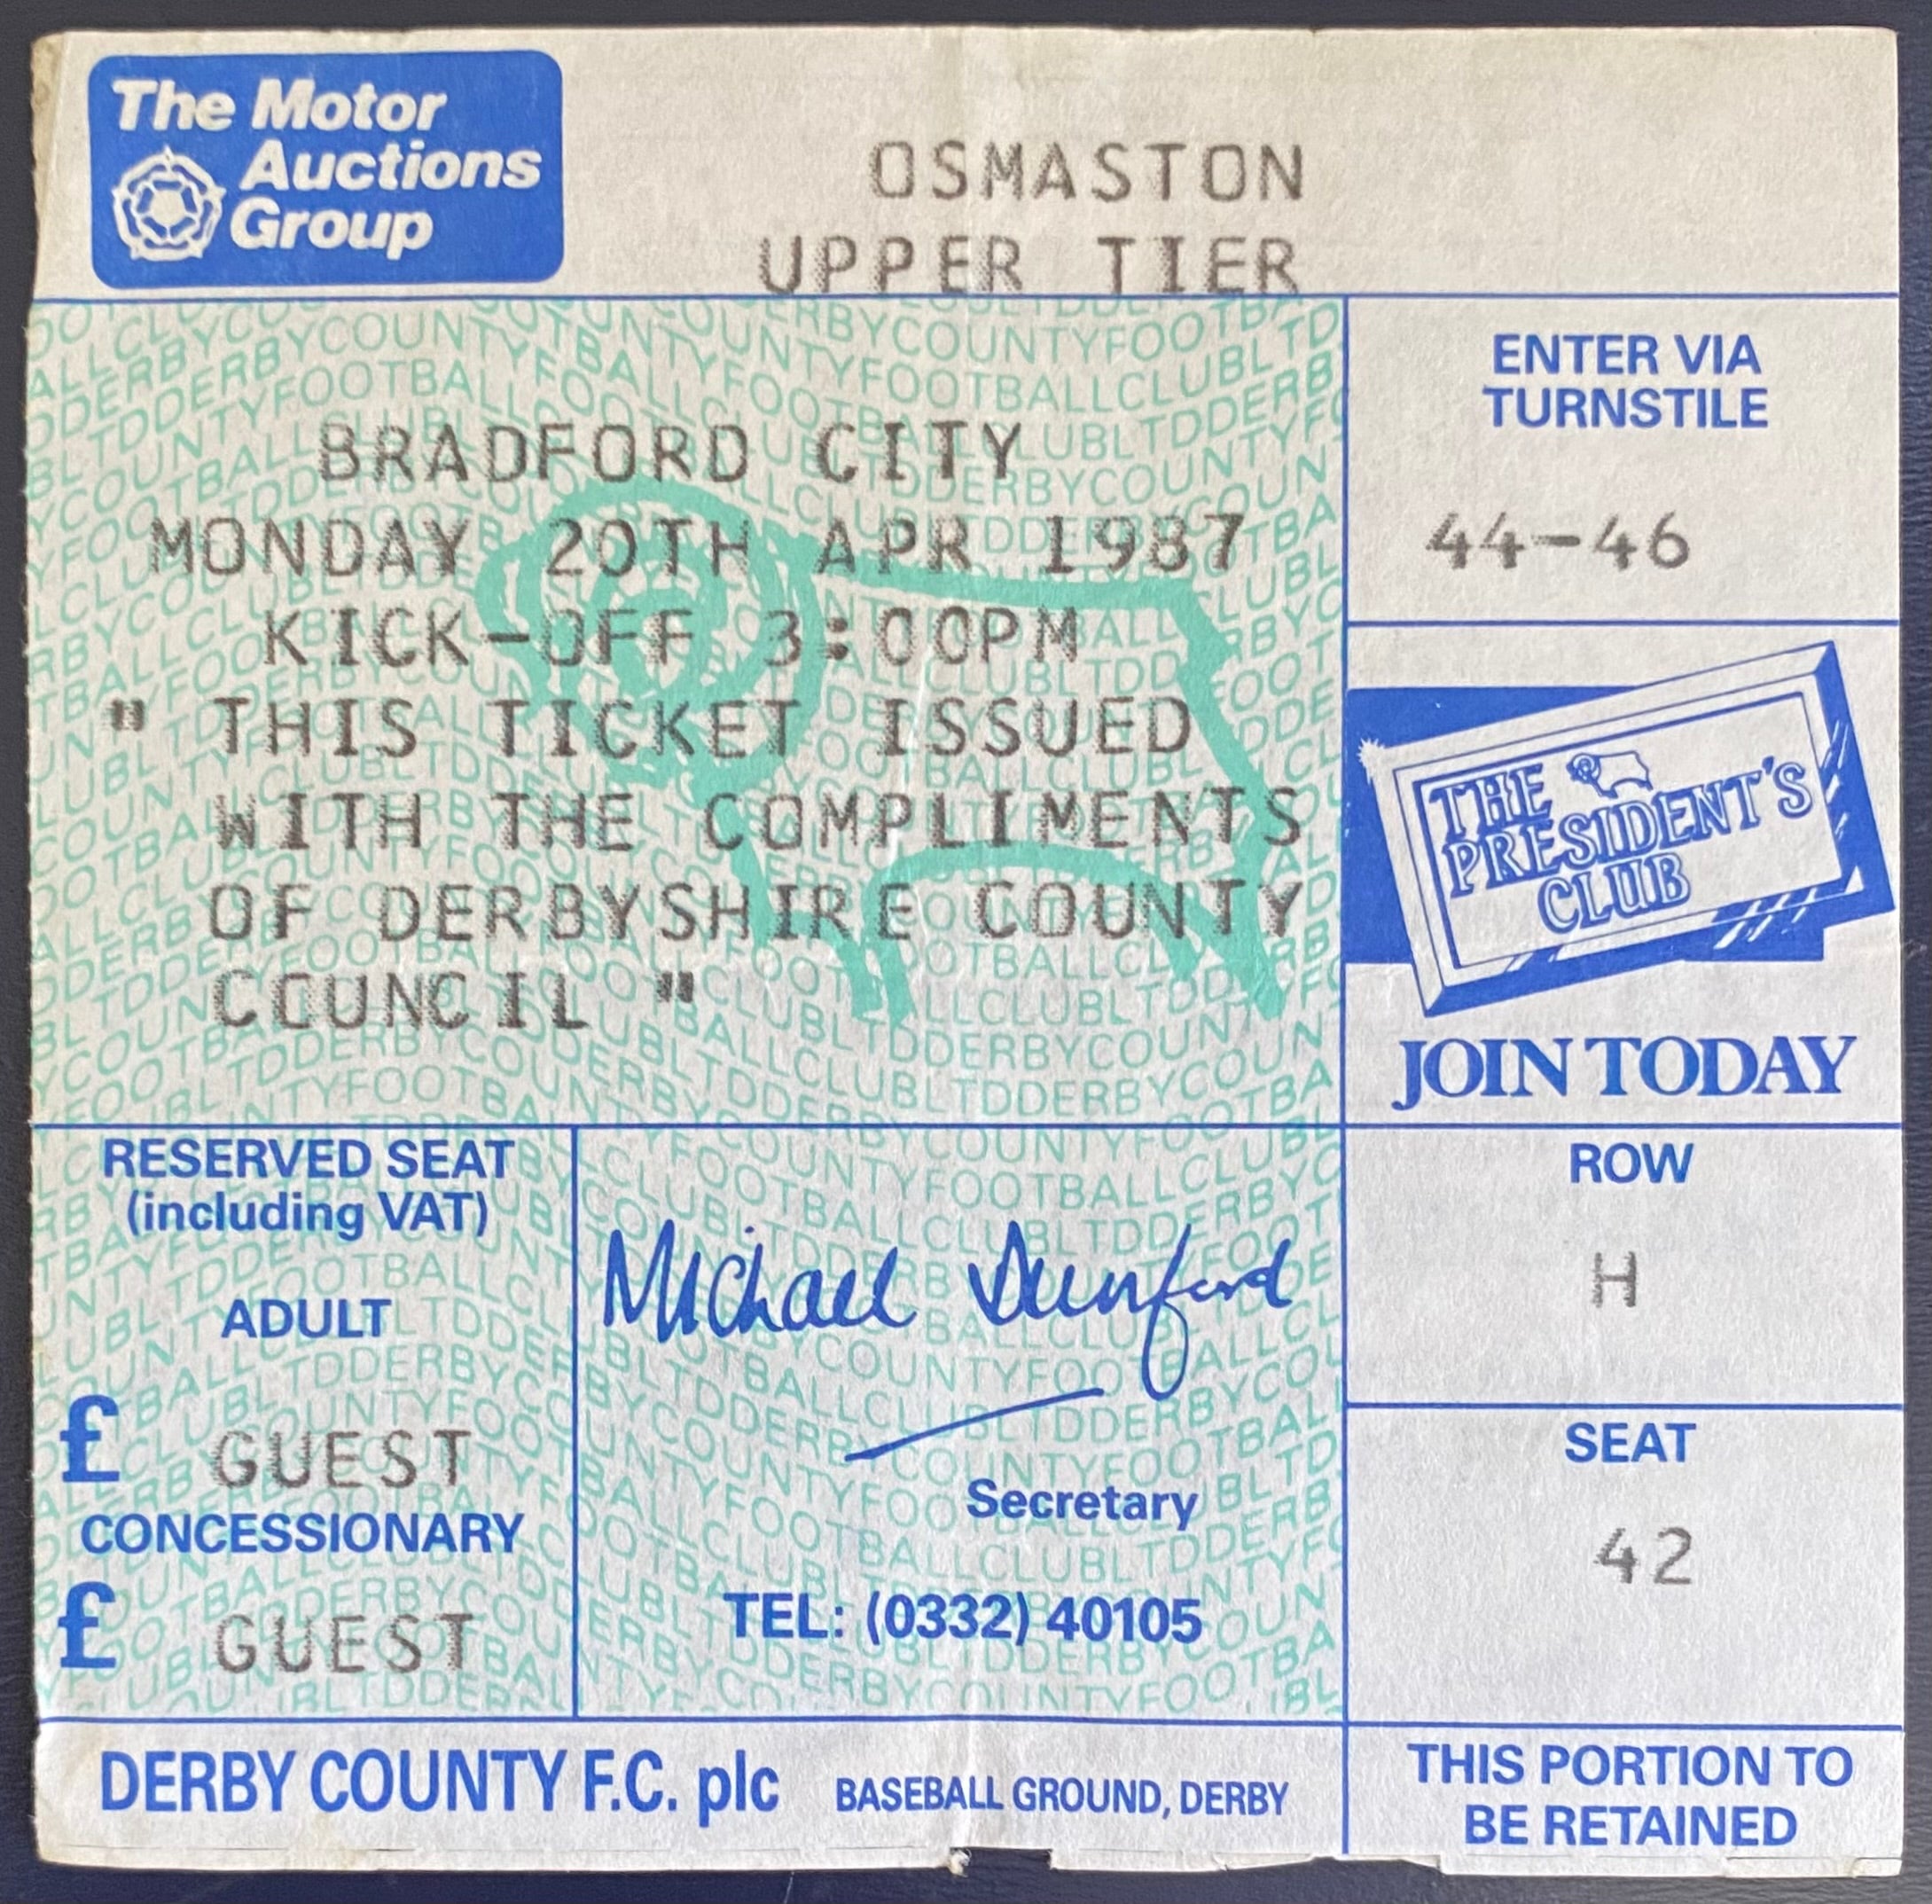 The Motor
Auctions
Group
OSMASTON
UPPER TIER
BRADFORD CITY
MONDAY 20TH APR 1987
KICK-OFF 3:00PM
" THIS TICKET ISSUED
WITH THE COMPLIMENTS
OF DERBYSHIRE COUNTY
COUNCIL "
ENTER VIA
TURNSTILE
44-46
THE
PRESIDENT'S
CLUB
JOIN TODAY
RESERVED SEAT
(including VAT)
ADULT
£ GUEST
CONCESSIONARY
£ GUEST
Michael Dunford
Secretary
TEL: (0332) 40105
ROW
H
SEAT
42
DERBY COUNTY F.C. plc BASEBALL GROUND, DERBY
THIS PORTION TO
BE RETAINED